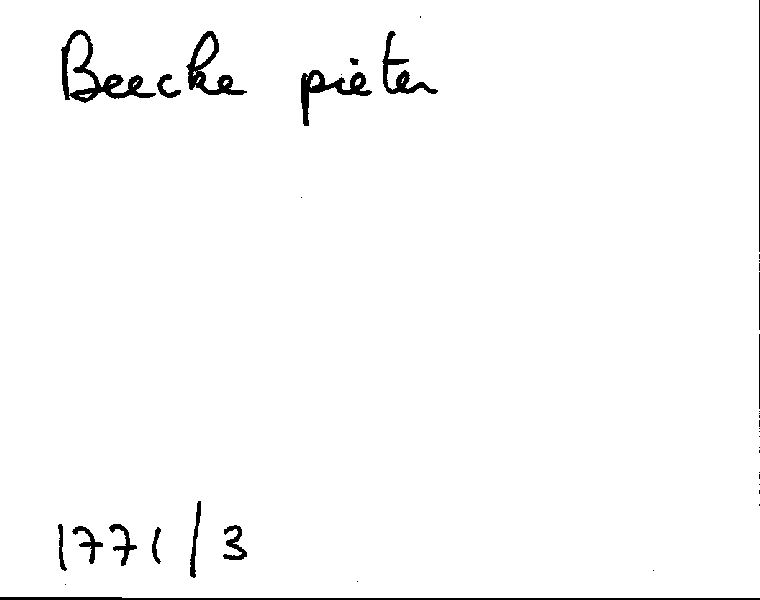 Beecke pieter
1771/3